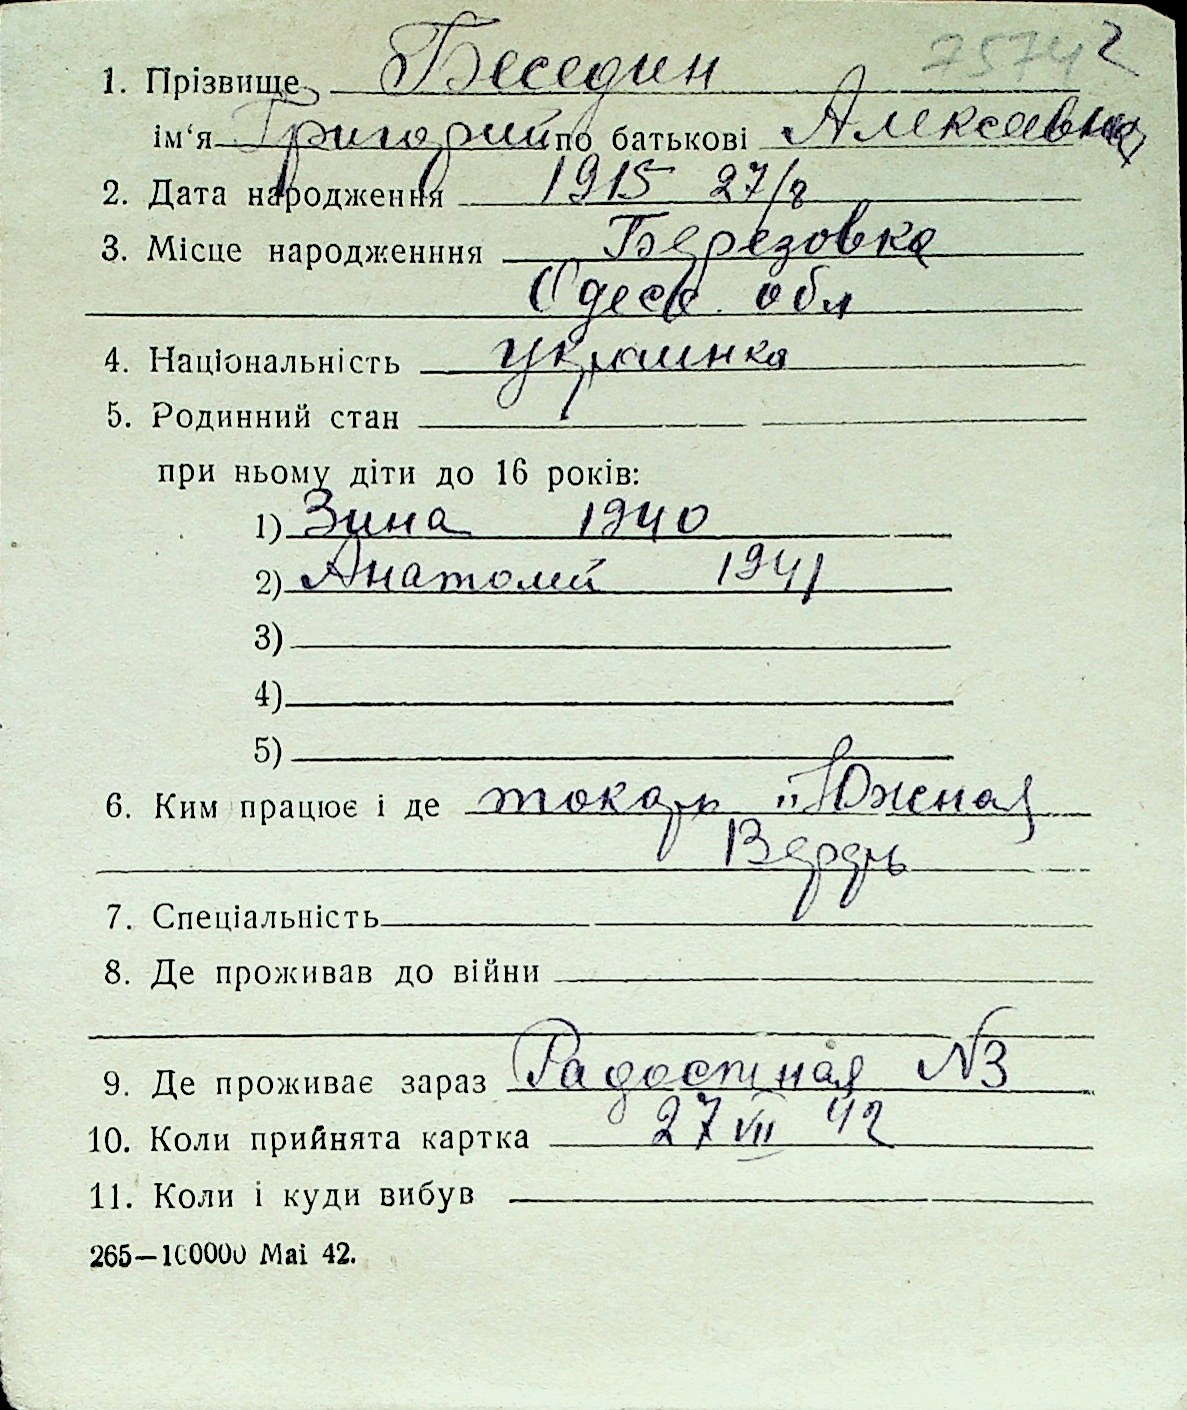 75742
1. Прізвище Беседин
ім'я Григорий по батькові
2. Дата народження 1915 27/8
3. Місце народженння Березовка
Одеск. обл
4. Національність украинка
5. Родинний стан
при ньому діти до 16 років:
1) Зина 1940
2) Анатолий 1941
3)
4)
5)
6. Ким працює і де токарь "Южная
Верфь
7. Спеціальність
8. Де проживав до війни
9. Де проживає зараз Радостная N3
10. Коли прийнята картка 27 VII 42
11. Коли і куди вибув
265—100000 Маі 42.